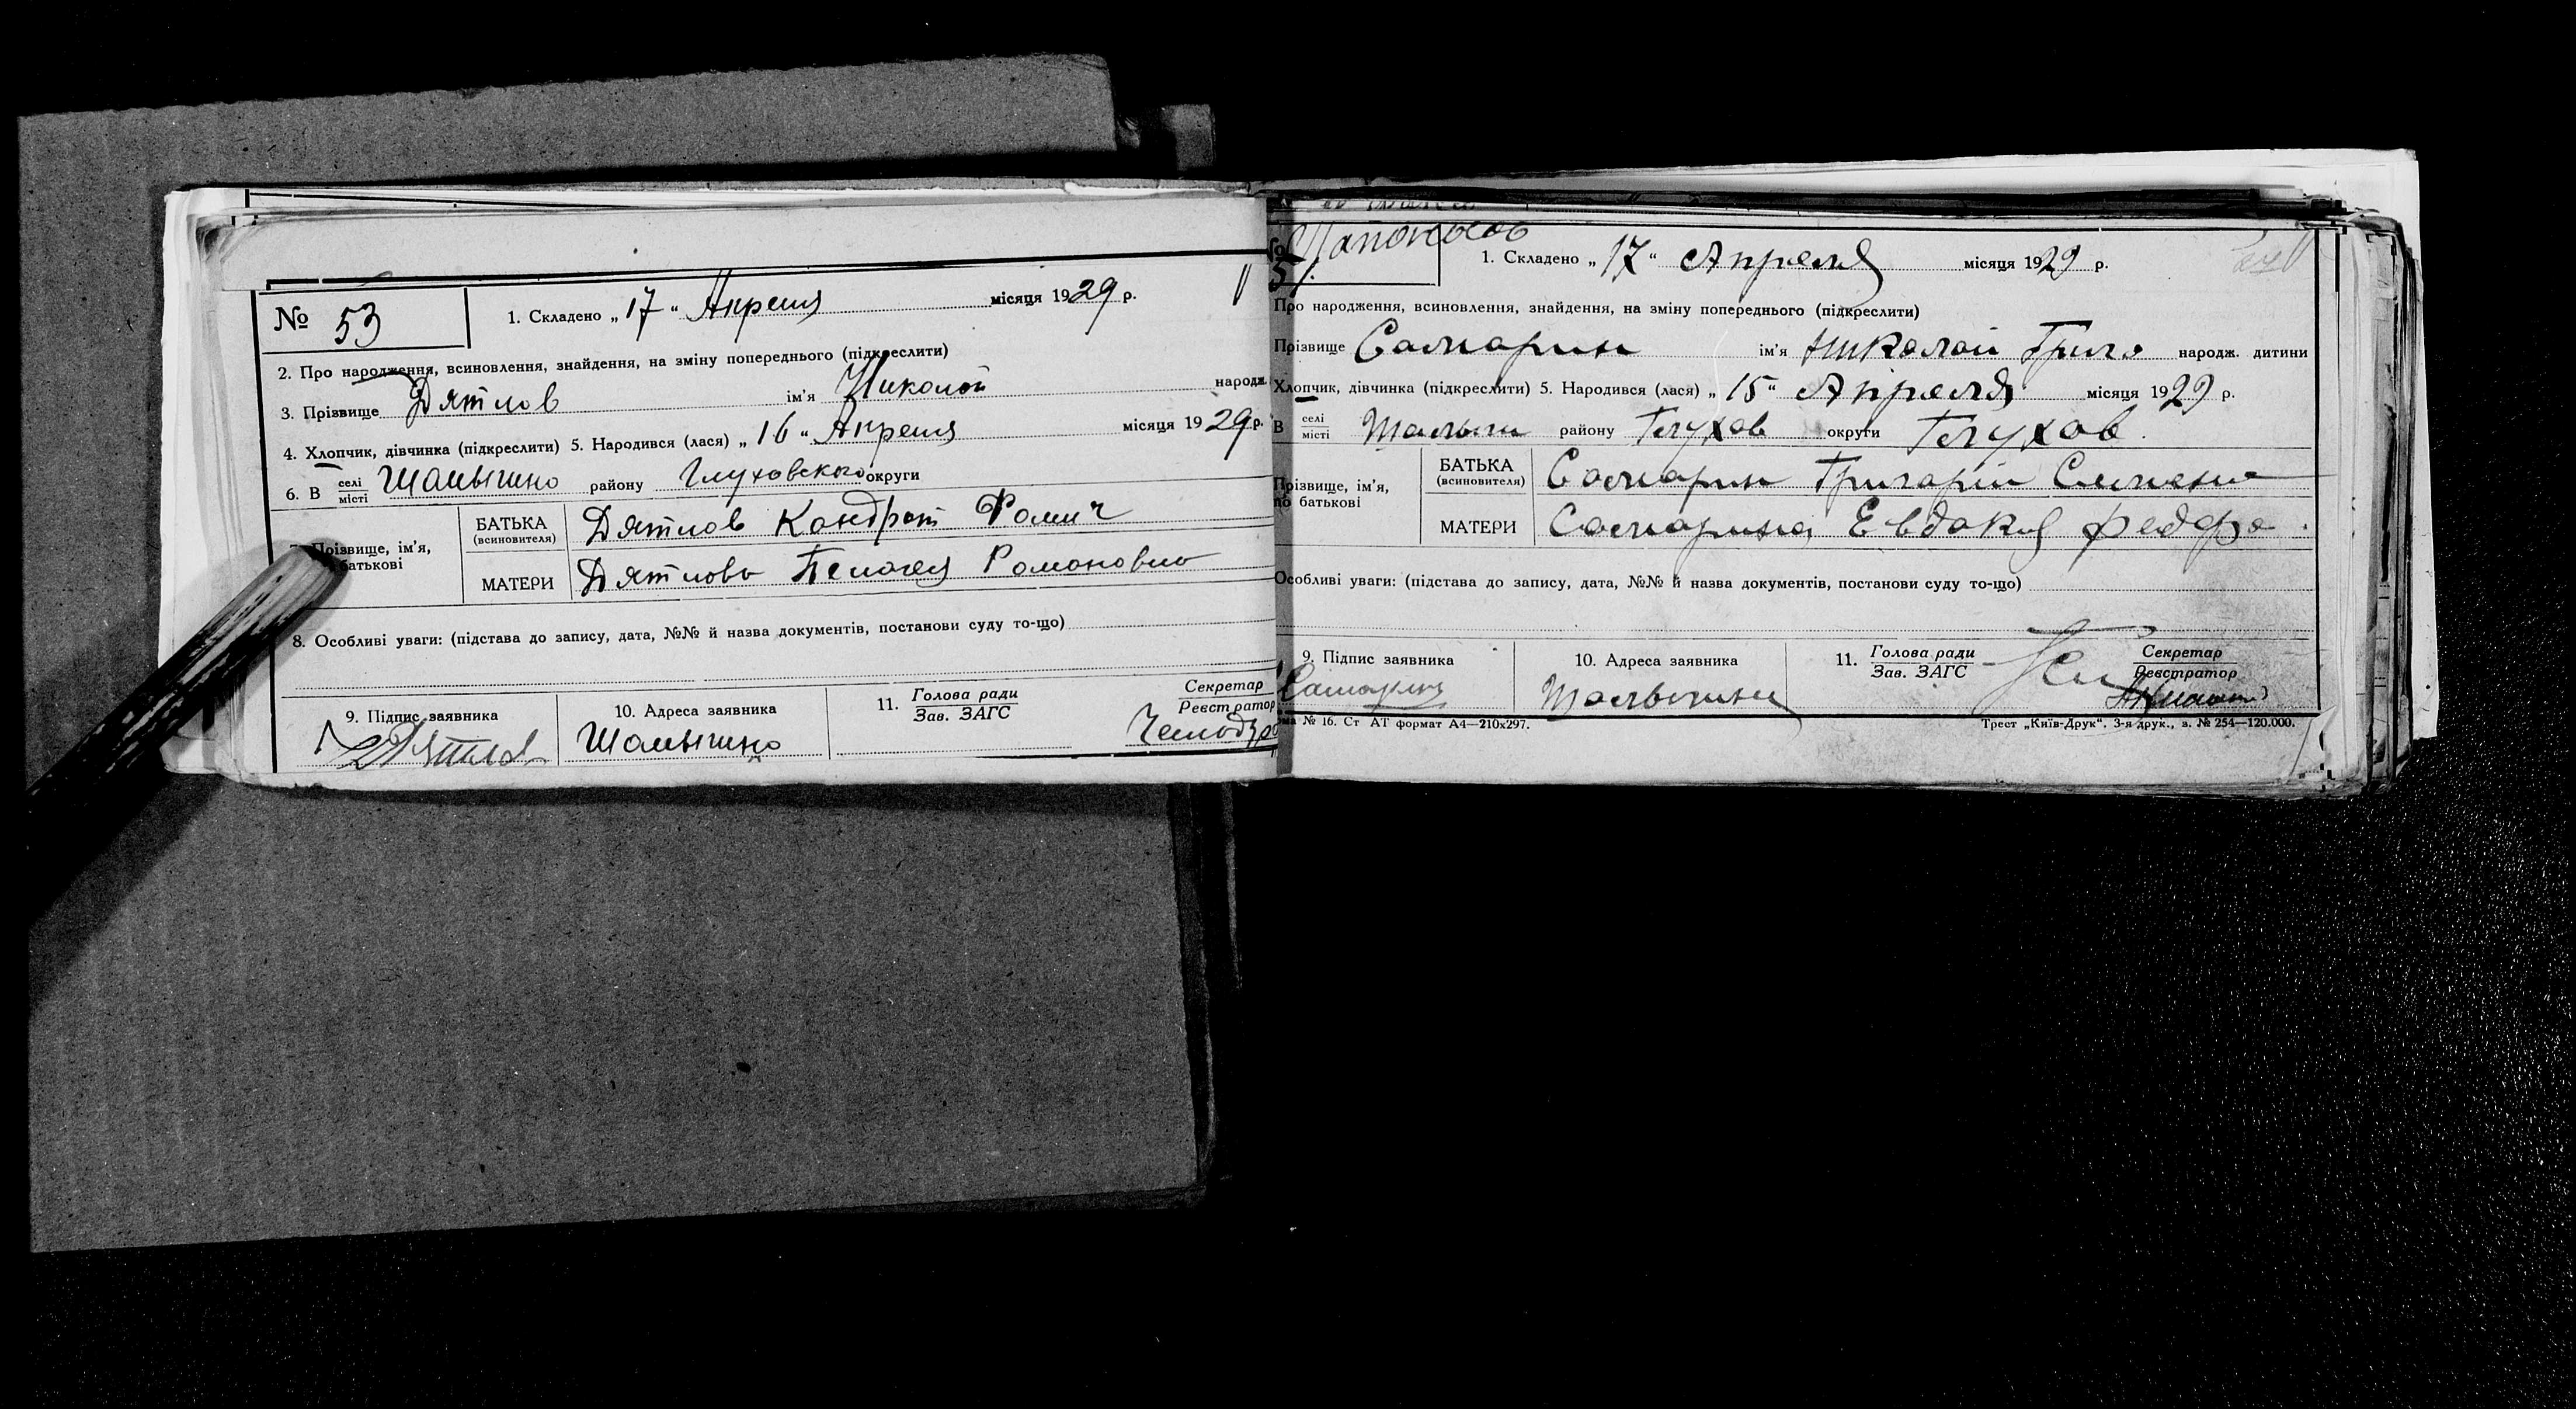 № 53
1. Складено „17“ Апреля місяця 1929 р.
2. Про народження, всиновлення, знайдення, на зміну попереднього (підкреслити)
3. Прізвище Дятлов ім'я Николай народж.
4. Хлопчик, дівчинка (підкреслити) 5. Народився (лася) „16“ Апреля місяця 1929 р.
6. В селі місті Шалыгино району Глуховского округи
Прізвище, ім'я, батькові
БАТЬКА (всиновителя) Дятлов Кондрат Фомич
МАТЕРИ Дятлова Пелагея Романовна
8. Особливі уваги: (підстава до запису, дата, №№ й назва документів, постанови суду то-що)
9. Підпис заявника
10. Адреса заявника
11. Голова ради Зав. ЗАГС
Секретар Реєстратор
Дятлов Шалыгино
№
1. Складено „17“ Апреля місяця 1929 р.
Про народження, всиновлення, знайдення, на зміну попереднього (підкреслити)
Прізвище Самарин ім'я Николай Григо народж. дитини
Хлопчик, дівчинка (підкреслити) 5. Народився (лася) „15“ Апреля місяця 1929 р.
В селі місті Шалыги району Глухов округи Глухов.
Прізвище, ім'я, по батькові
БАТЬКА (всиновителя) Самарин Григарий
МАТЕРИ Самарина Евдокия Федоро
Особливі уваги: (підстава до запису, дата, №№ й назва документів, постанови суду то-що)
9. Підпис заявника
10. Адреса заявника
11. Голова ради Зав. ЗАГС
Секретар Реєстратор
Самарин Шалыгини
№ 16. Ст АТ формат А4—210х297.
Трест „Київ-Друк“. 3-я друк., в. № 254—120.000.